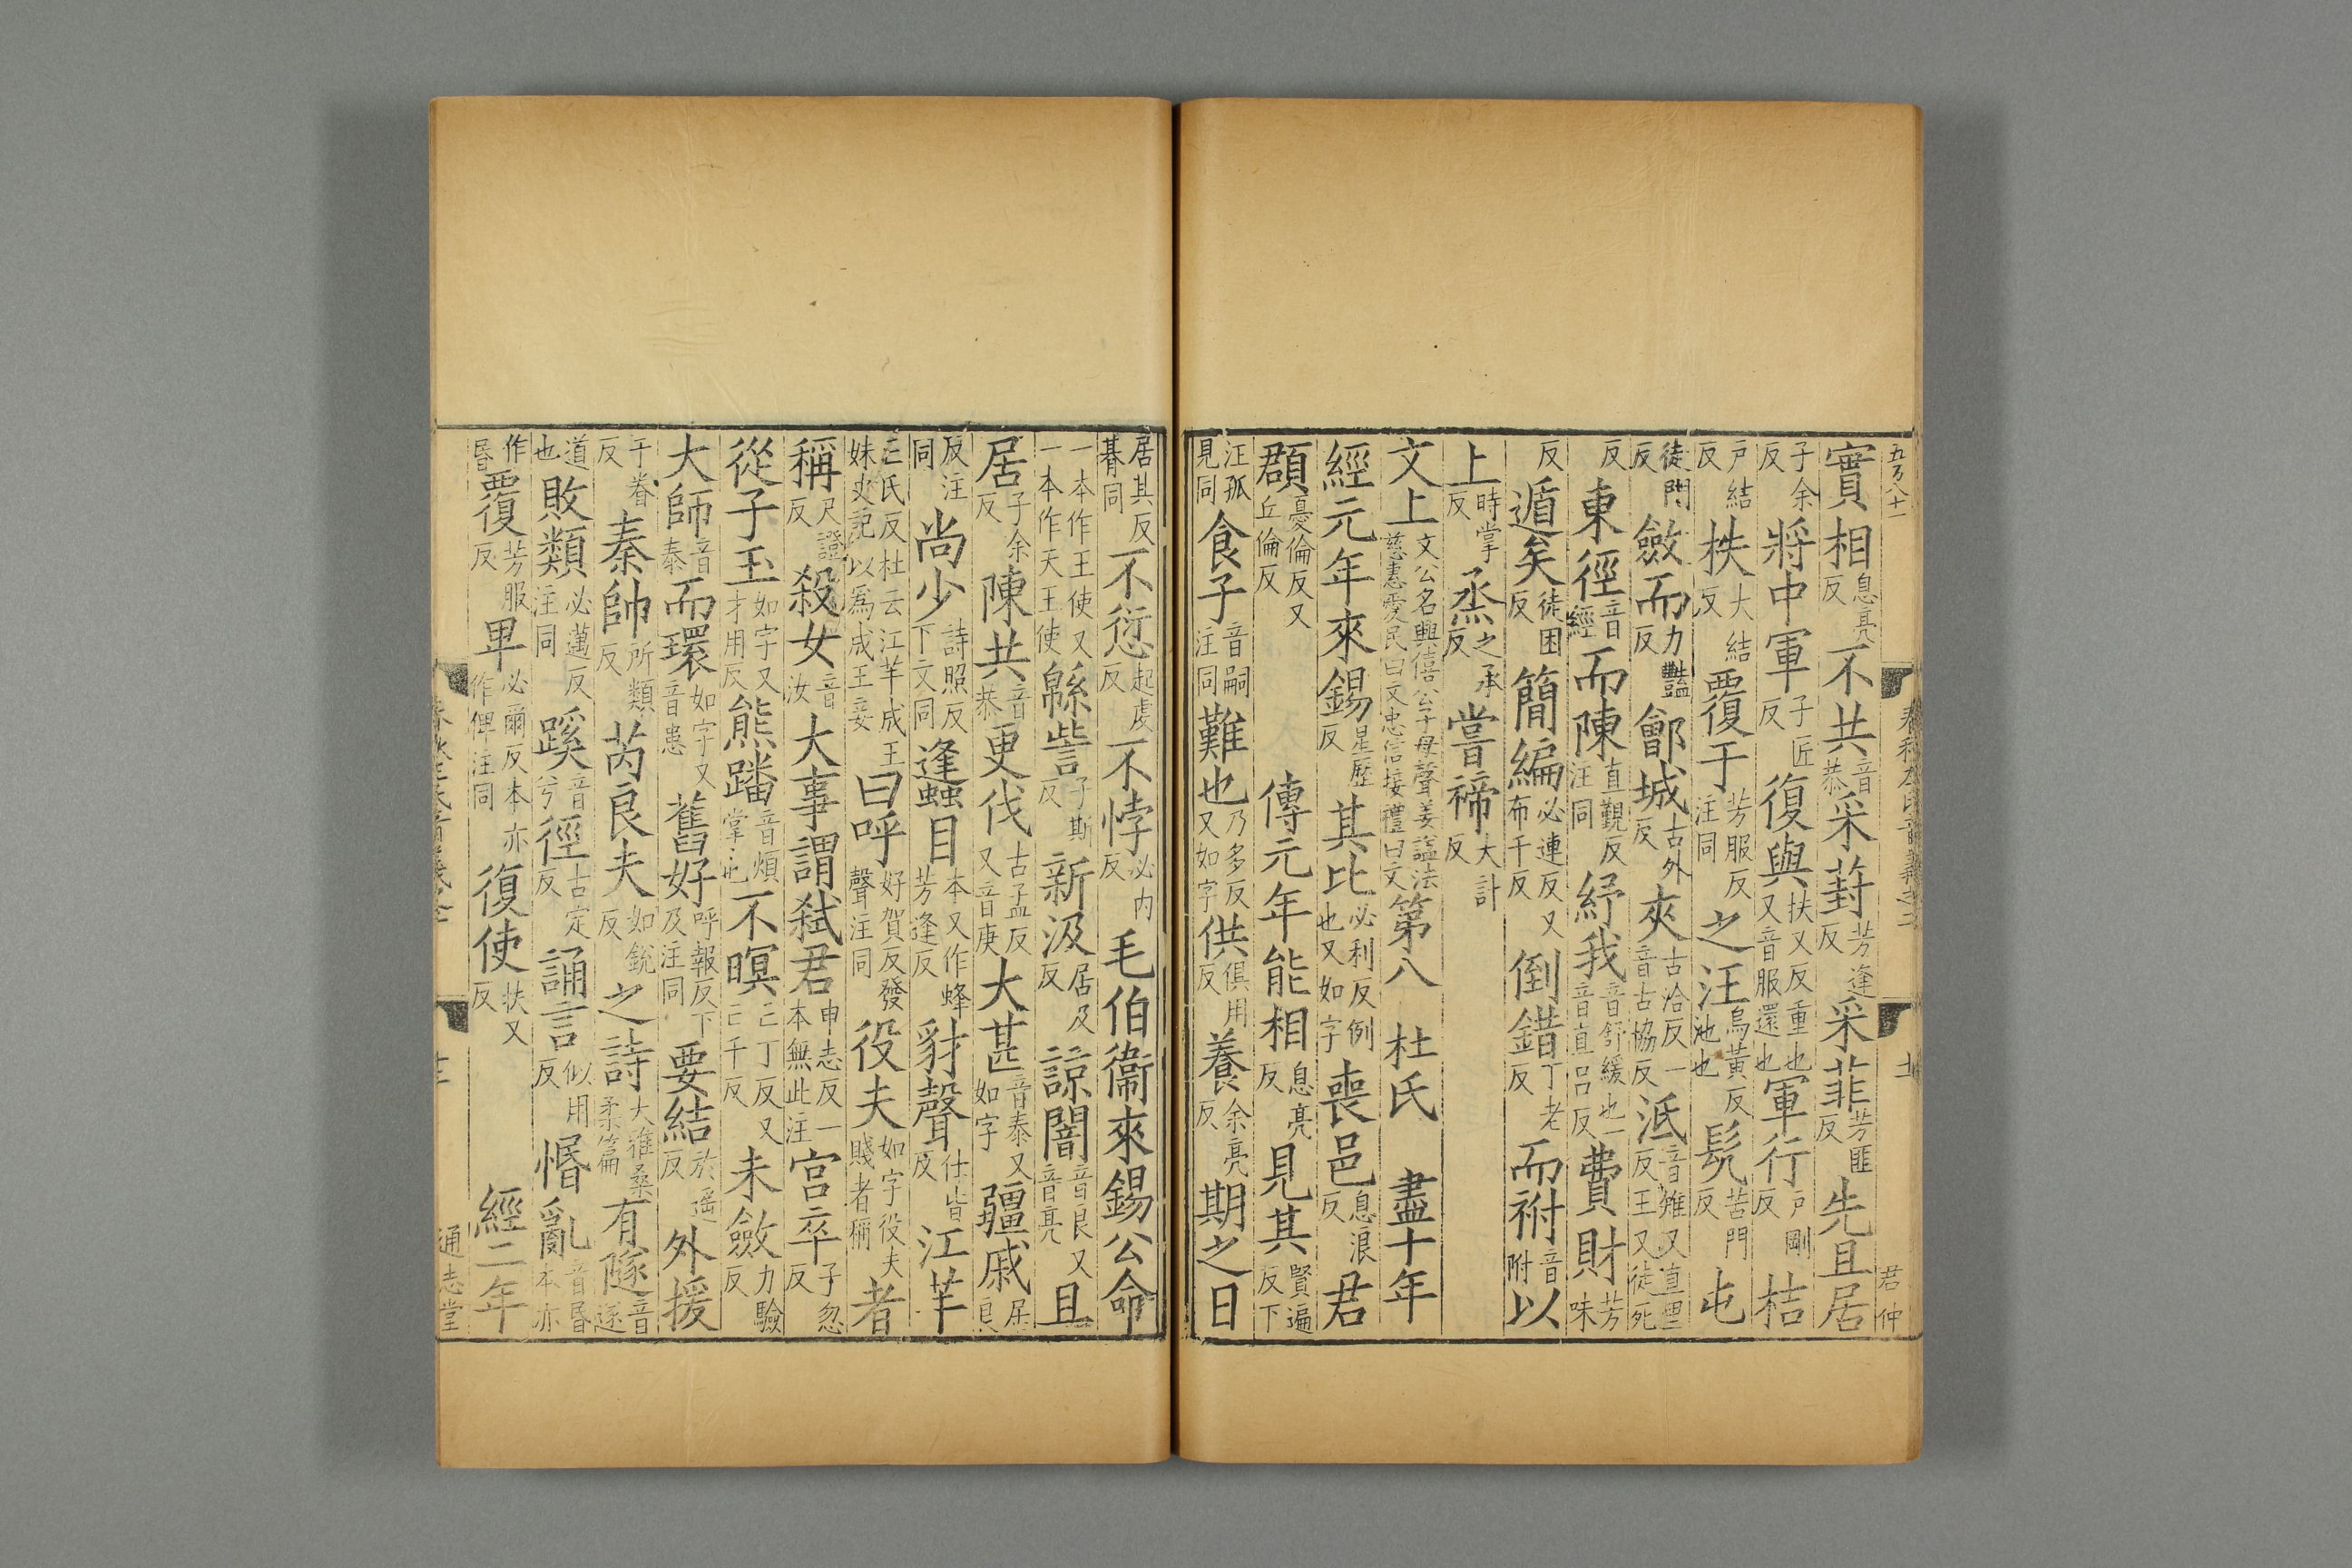 五百八十一 君仲
實相息亮反不共音恭采葑芳逢反采菲芳匪反先且居
子余反將中軍子匠反復與扶又反重也又音服還也軍行戶剛反桔
戶結反柣大結反覆于芳服反注同之汪烏黃反池也髡苦門反屯
徒門反斂而力豔反鄶城古外反夾古洽反一音古協反泜音雉又直里反王又徒死
反東徑音經而陳直覲反注同紓我音舒緩也一音直呂反費財芳味
反遁矣徒困反簡編必連反又布千反倒錯丁老反而祔音附以
上時掌反烝之承反嘗禘大計反
文上文公名興僖公子母聲姜謚法慈惠愛民曰文忠信接禮曰文第八 杜氏 盡十年
經元年來錫星歷反其比必利反例也又如字喪邑息浪反君
頵憂倫反又丘倫反 傳元年能相息亮反見其賢遍反下
汪孤見同食子音嗣注同難也乃多反又如字供俱用反養余亮反期之日
居其反朞同不愆起虔反不悖必內反毛伯衞來錫公命
一本作王使又一本作天王使緜訾子斯反新汲居及反諒闇音良又音亮且
居子余反陳共音恭更伐古孟反又音庚大甚音泰又如字疆戚居良
反注同尚少詩照反下文同蠭目本又作蜂芳逢反豺聲仕皆反江羋
亡氏反杜云江羋成王妹史記以爲成王妾曰呼好賀反發聲注同役夫如字役夫賤者稱者
稱尺證反殺女音汝大事謂弒君申志反一本無此注宮卒子忽反
從子玉如字又才用反熊蹯音煩掌也不暝亡丁反又亡千反未斂力驗反
大師音泰而環如字又音患舊好呼報反下及注同要結於遥反外援
于眷反秦帥所類反芮良夫如銳反之詩大雅桑柔篇有隧音遂
道也敗類必邁反注同蹊音兮徑古定反誦言似用反惛亂音昬本亦
作昬覆芳服反卑必爾反本亦作俾注同復使扶又反 經二年
通志堂